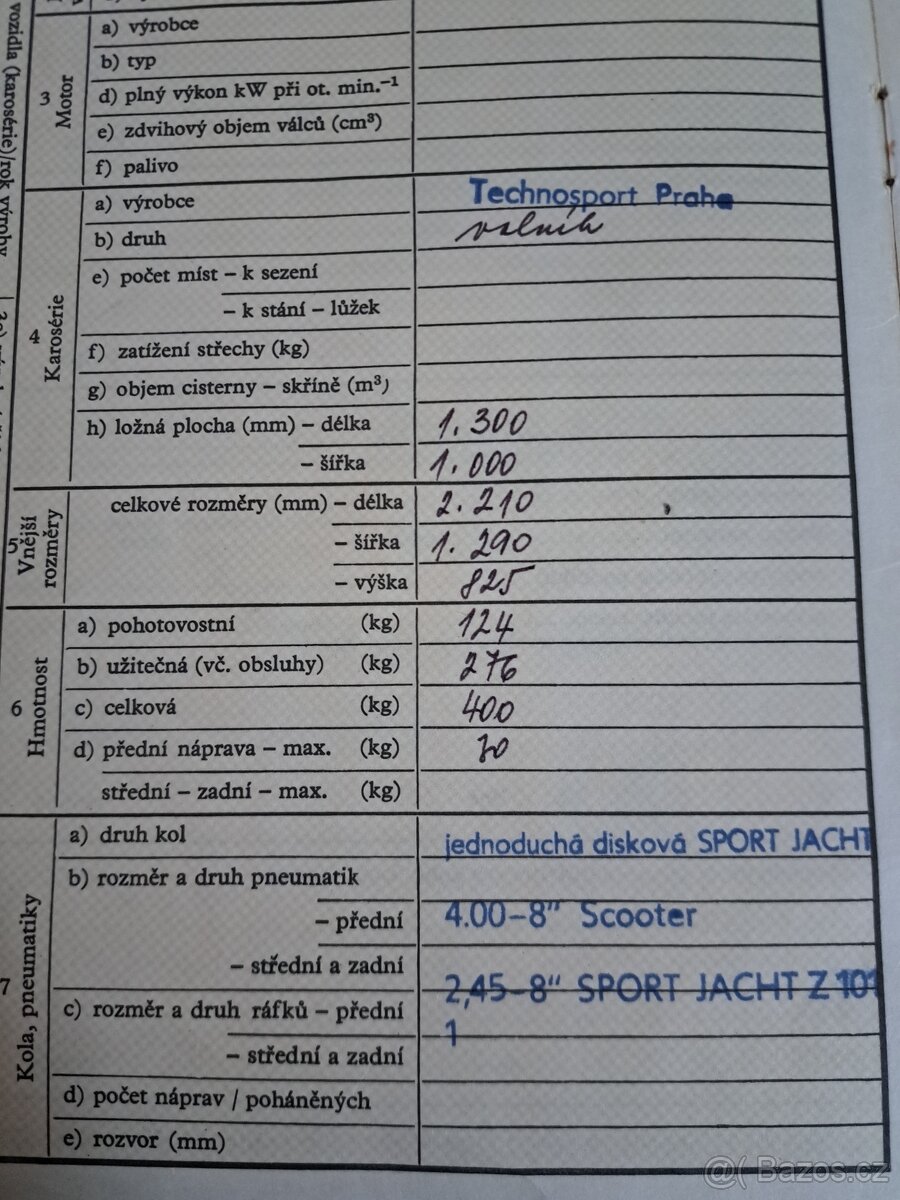 vozidla (karosérie)/rok výroby
3
Motor
a) výrobce
b) typ
d) plný výkon kW při ot. min.⁻¹
e) zdvihový objem válců (cm³)
f) palivo
4
Karosérie
a) výrobce Technosport Praha
b) druh valník
e) počet míst – k sezení
– k stání – lůžek
f) zatížení střechy (kg)
g) objem cisterny – skříně (m³)
h) ložná plocha (mm) – délka 1.300
– šířka 1.000
5
Vnější
rozměry
celkové rozměry (mm) – délka 2.210
– šířka 1.290
– výška 825
6
Hmotnost
a) pohotovostní (kg) 124
b) užitečná (vč. obsluhy) (kg) 276
c) celková (kg) 400
d) přední náprava – max. (kg) 30
střední – zadní – max. (kg)
7
Kola, pneumatiky
a) druh kol jednoduchá disková SPORT JACHT
b) rozměr a druh pneumatik
– přední 4.00–8" Scooter
– střední a zadní
2,45–8" SPORT JACHT Z 101
c) rozměr a druh ráfků – přední
1
– střední a zadní
d) počet náprav / poháněných
e) rozvor (mm)
@( Bazos.cz